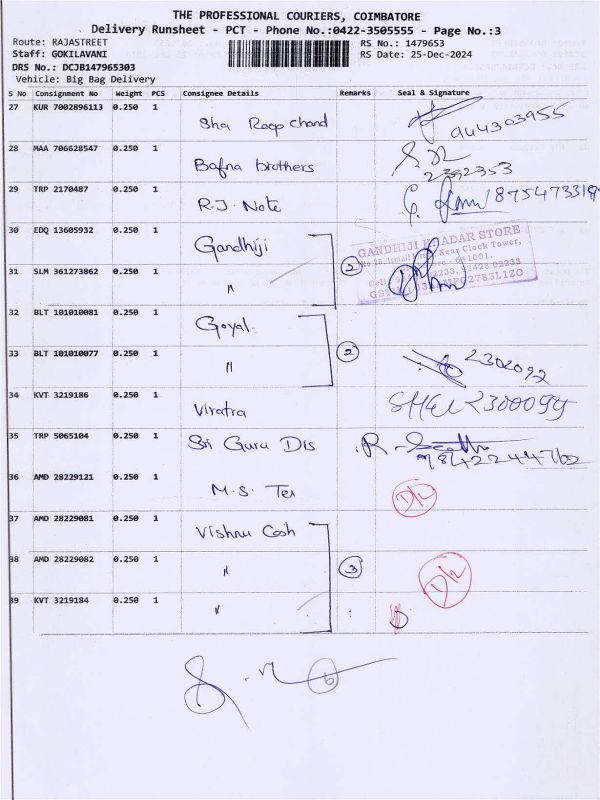 THE PROFESSIONAL COURIERS, COIMBATORE
Delivery Runsheet - PCT - Phone No.:0422-3505555 - Page No.:3
Route: RAJASTREET RS No.: 1479653
Staff: GOKILAVANI RS Date: 25-Dec-2024
DRS No.: DCJB147965303
Vehicle: Big Bag Delivery
S No Consignment No Weight PCS Consignee Details Remarks Seal & Signature
27 KUR 7002896113 0.250 1 Sha Roop chand 944303955
28 MAA 706628547 0.250 1 Bafna brothers 2392353
29 TRP 2170487 0.250 1 R.J. Note
30 EDQ 13605932 0.250 1 Gandhiji
GANDHIJI STORE
Near Clock Tower,
31 SLM 361273862 0.250 1 "
32 BLT 101010081 0.250 1 Goyal
33 BLT 101010077 0.250 1 " 2 2302092
34 KVT 3219186 0.250 1 Viratra 2300099
35 TRP 5065104 0.250 1 Sri Guru Dis
36 AMD 28229121 0.250 1 M.S. Tex D/L
37 AMD 28229081 0.250 1 Vishnu
38 AMD 28229082 0.250 1 " 3 D/L
39 KVT 3219184 0.250 1 "
6